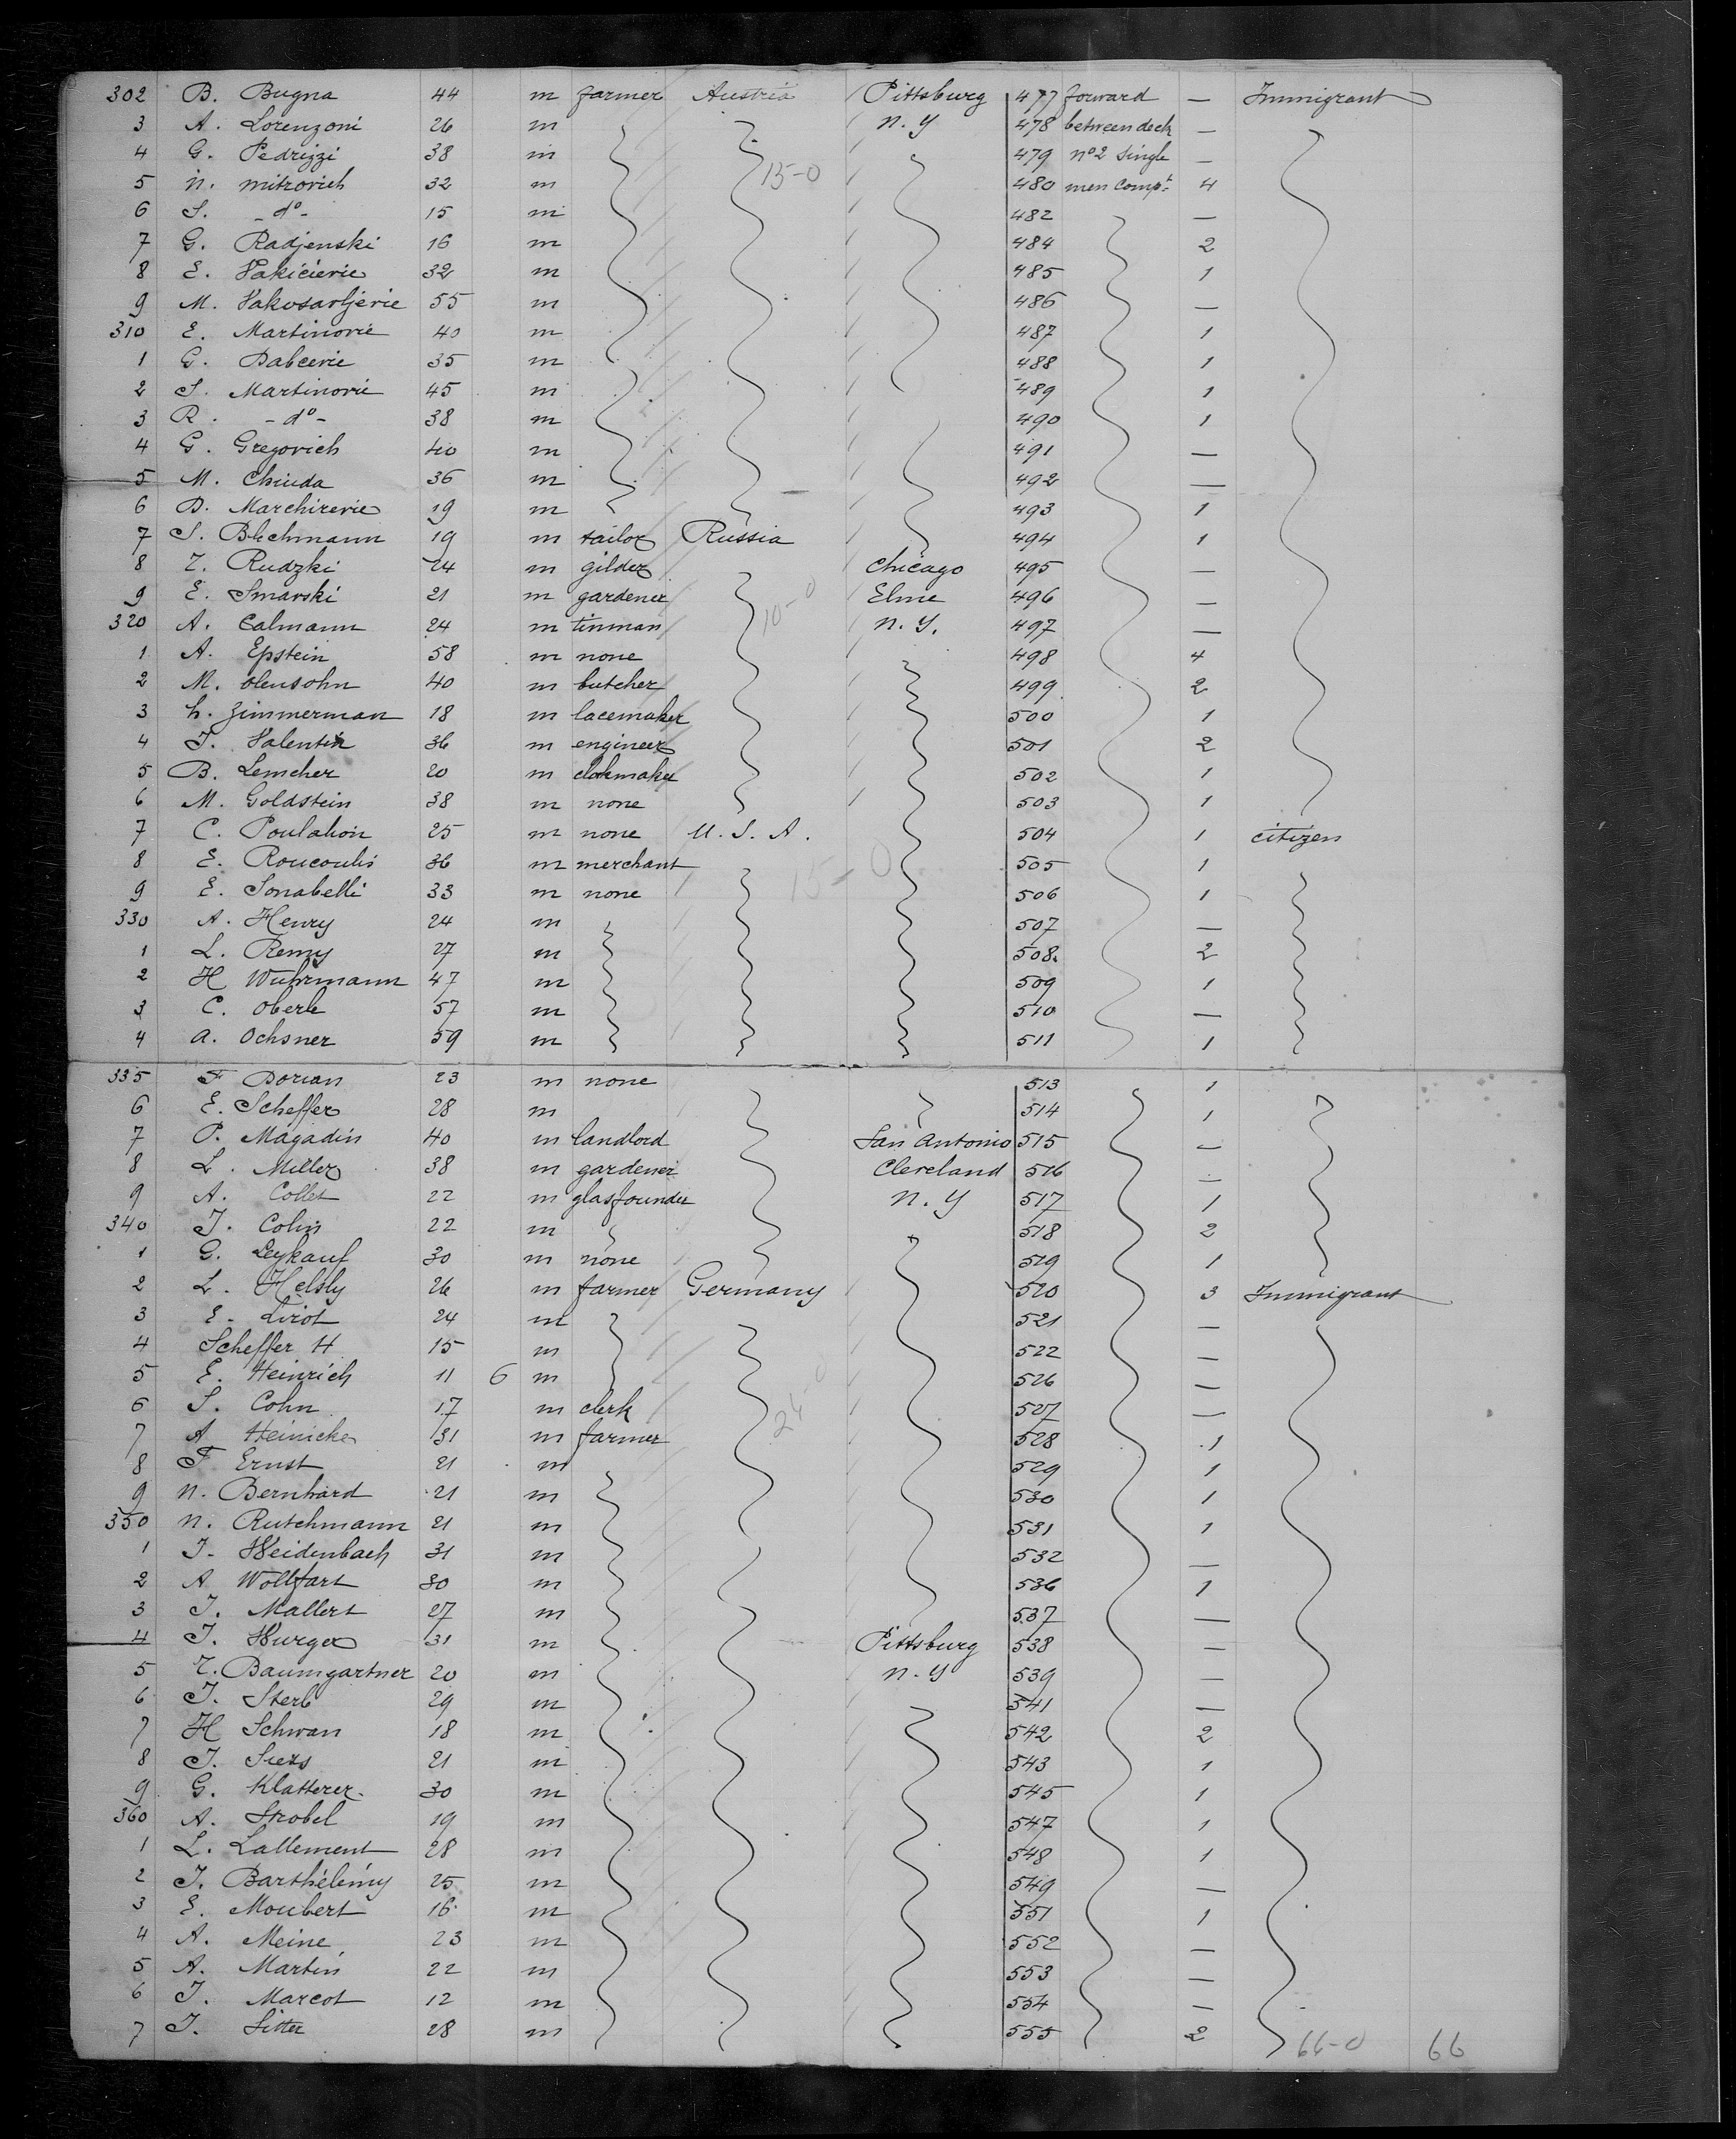 302 B. Bugna 44 m farmer Austria Pittsburg 477 forward — Immigrant
3 A. Lorenzoni 26 m N.Y 478 between deck —
4 G. Pedrizzi 38 m 479 no2 Single —
15-0
5 N. Mitrovich 32 m 480 men compt. 4
6 S. -do- 15 m 482 —
7 G. Radjenski 16 m 484 2
8 E. 32 m 485 1
9 M. 55 m 486 —
310 E. Martinovic 40 m 487 1
1 G. Dabcevic 35 m 488 1
2 S. Martinovic 45 m 489 1
3 R. -do- 38 m 490 1
4 G. Gregovich 40 m 491 —
5 M. Chiuda 36 m 492 —
6 D. Marchirevic 19 m 493 1
7 S. Blechmann 19 m tailor Russia 494 1
8 Rudzki 24 m gilder Chicago 495 —
9 E. Smarski 21 m gardener Elmie 496 —
10-0
320 A. Calmann 24 m tinman N.Y. 497 —
1 A. Epstein 58 m none 498 4
2 M. Olensohn 40 m butcher 499 2
3 h. Zimmerman 18 m lacemaker 500 1
4 J. Valentin 36 m engineer 501 2
5 B. Lemcher 20 m 502 1
6 M. Goldstein 38 m none 503 1
7 C. Poulahon 25 m none U.S.A. 504 1 citizen
8 E. Roucoulis 36 m merchant 505 1
15-0
9 E. Sonabelli 33 m none 506 1
330 A. Henry 24 m 507 —
1 L. Remy 27 m 508 2
2 H Wuhrmann 47 m 509 1
3 C. Oberle 57 m 510 —
4 A. Ochsner 59 m 511 1
335 F Dorian 23 m none 513 1
6 E. Scheffer 28 m 514 1
7 P. Magadin 40 m landlord San Antonio 515 —
8 L. Miller 38 m gardener Cleveland 516 —
9 A. Collet 22 m glasfounder N.Y 517 1
340 J. Colin 22 m 518 2
1 G. Leykauf 30 m none 519 1
2 L. Helsly 26 m farmer Germany 520 3 Immigrant
3 E. Lirot 24 m 521 —
4 Scheffer H 15 m 522 —
5 E. Heinrich 11 6 m 526 —
24-0
6 S. Cohn 17 m clerk 527 —
7 A Heinicke 31 m farmer 528 1
8 F Ernst 21 m 529 1
9 N. Bernhard 21 m 530 1
350 N. Rutchmann 21 m 531 1
1 J. Heidenbach 31 m 532 —
2 A Wollfart 30 m 536 1
3 J. Mallert 27 m 537 —
4 J. Hurger 31 m Pittsburg 538 —
5 Baumgartner 20 m N.Y 539 —
6 J. Sterb 29 m 541 —
7 H Schwan 18 m 542 2
8 J. Siers 21 m 543 1
9 G. Klatterer 30 m 545 1
360 A. Strobel 19 m 547 1
1 L. Lallement 28 m 548 1
2 J. Barthélémy 25 m 549 —
3 E. Moubert 16 m 551 1
4 A. Meine 23 m 552 —
5 A. Martin 22 m 553 —
6 J. Marcot 12 m 554 —
7 J. Sitter 28 m 555 2
66-0 66